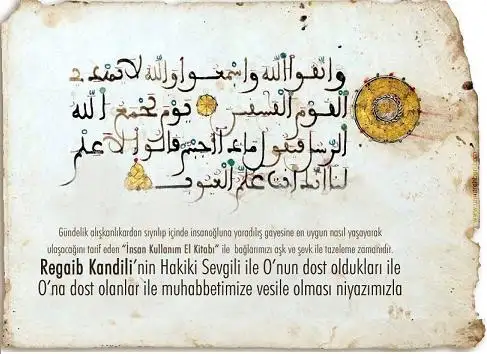 واتقوا الله واسمعوا والله لا يهدى
القوم الفسقين يوم يجمع الله
الرسل فيقول ماذا اجبتم قالوا لا علم
لنا انك انت علم الغيوب
Gündelik alışkanlıkardan sıyrılıp içinde insanoğluna yaradılış gayesine en uygun nasıl yaşayarak
ulaşacağını tarif eden "İnsan Kullanım El Kitabı" ile bağlarımızı aşk ve şevk ile tazeleme zamanıdır.
Regaib Kandili'nin Hakiki Sevgili ile O'nun dost oldukları ile
O'na dost olanlar ile muhabbetimize vesile olması niyazımızla